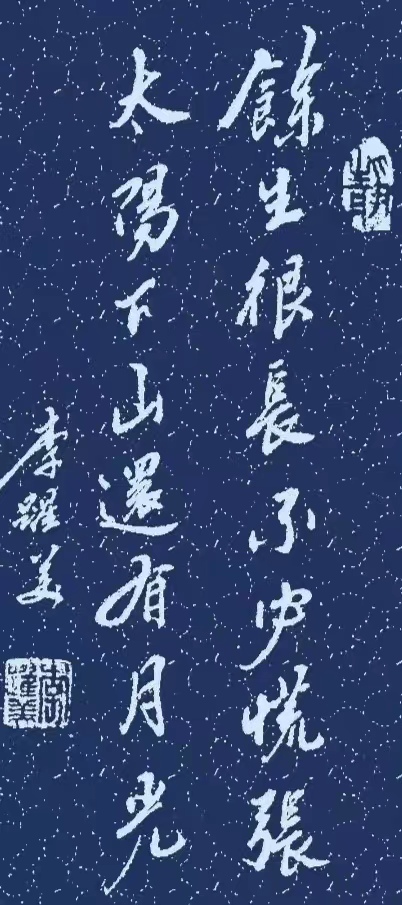 餘生很長不必慌張
太陽下山還有月光
李躍美
李躍美